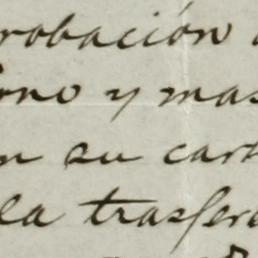 robación
ono y mas
n su cart
la trasfer